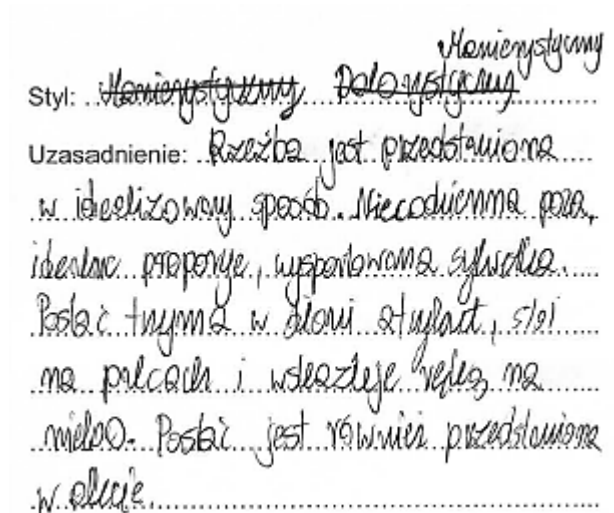 Manierystyczny
Styl: Manierystyczny Dolorystyczny
Uzasadnienie: Rzeźba jest przedstawiona
w idealizowany sposób. Niecodzienna poza,
idealne proporcje, wysportowana sylwetka.
Postać trzyma w dłoni atrybut, stoi
na palcach i wskazuje ręką na
niebo. Postać jest również przedstawiona
w akcie.